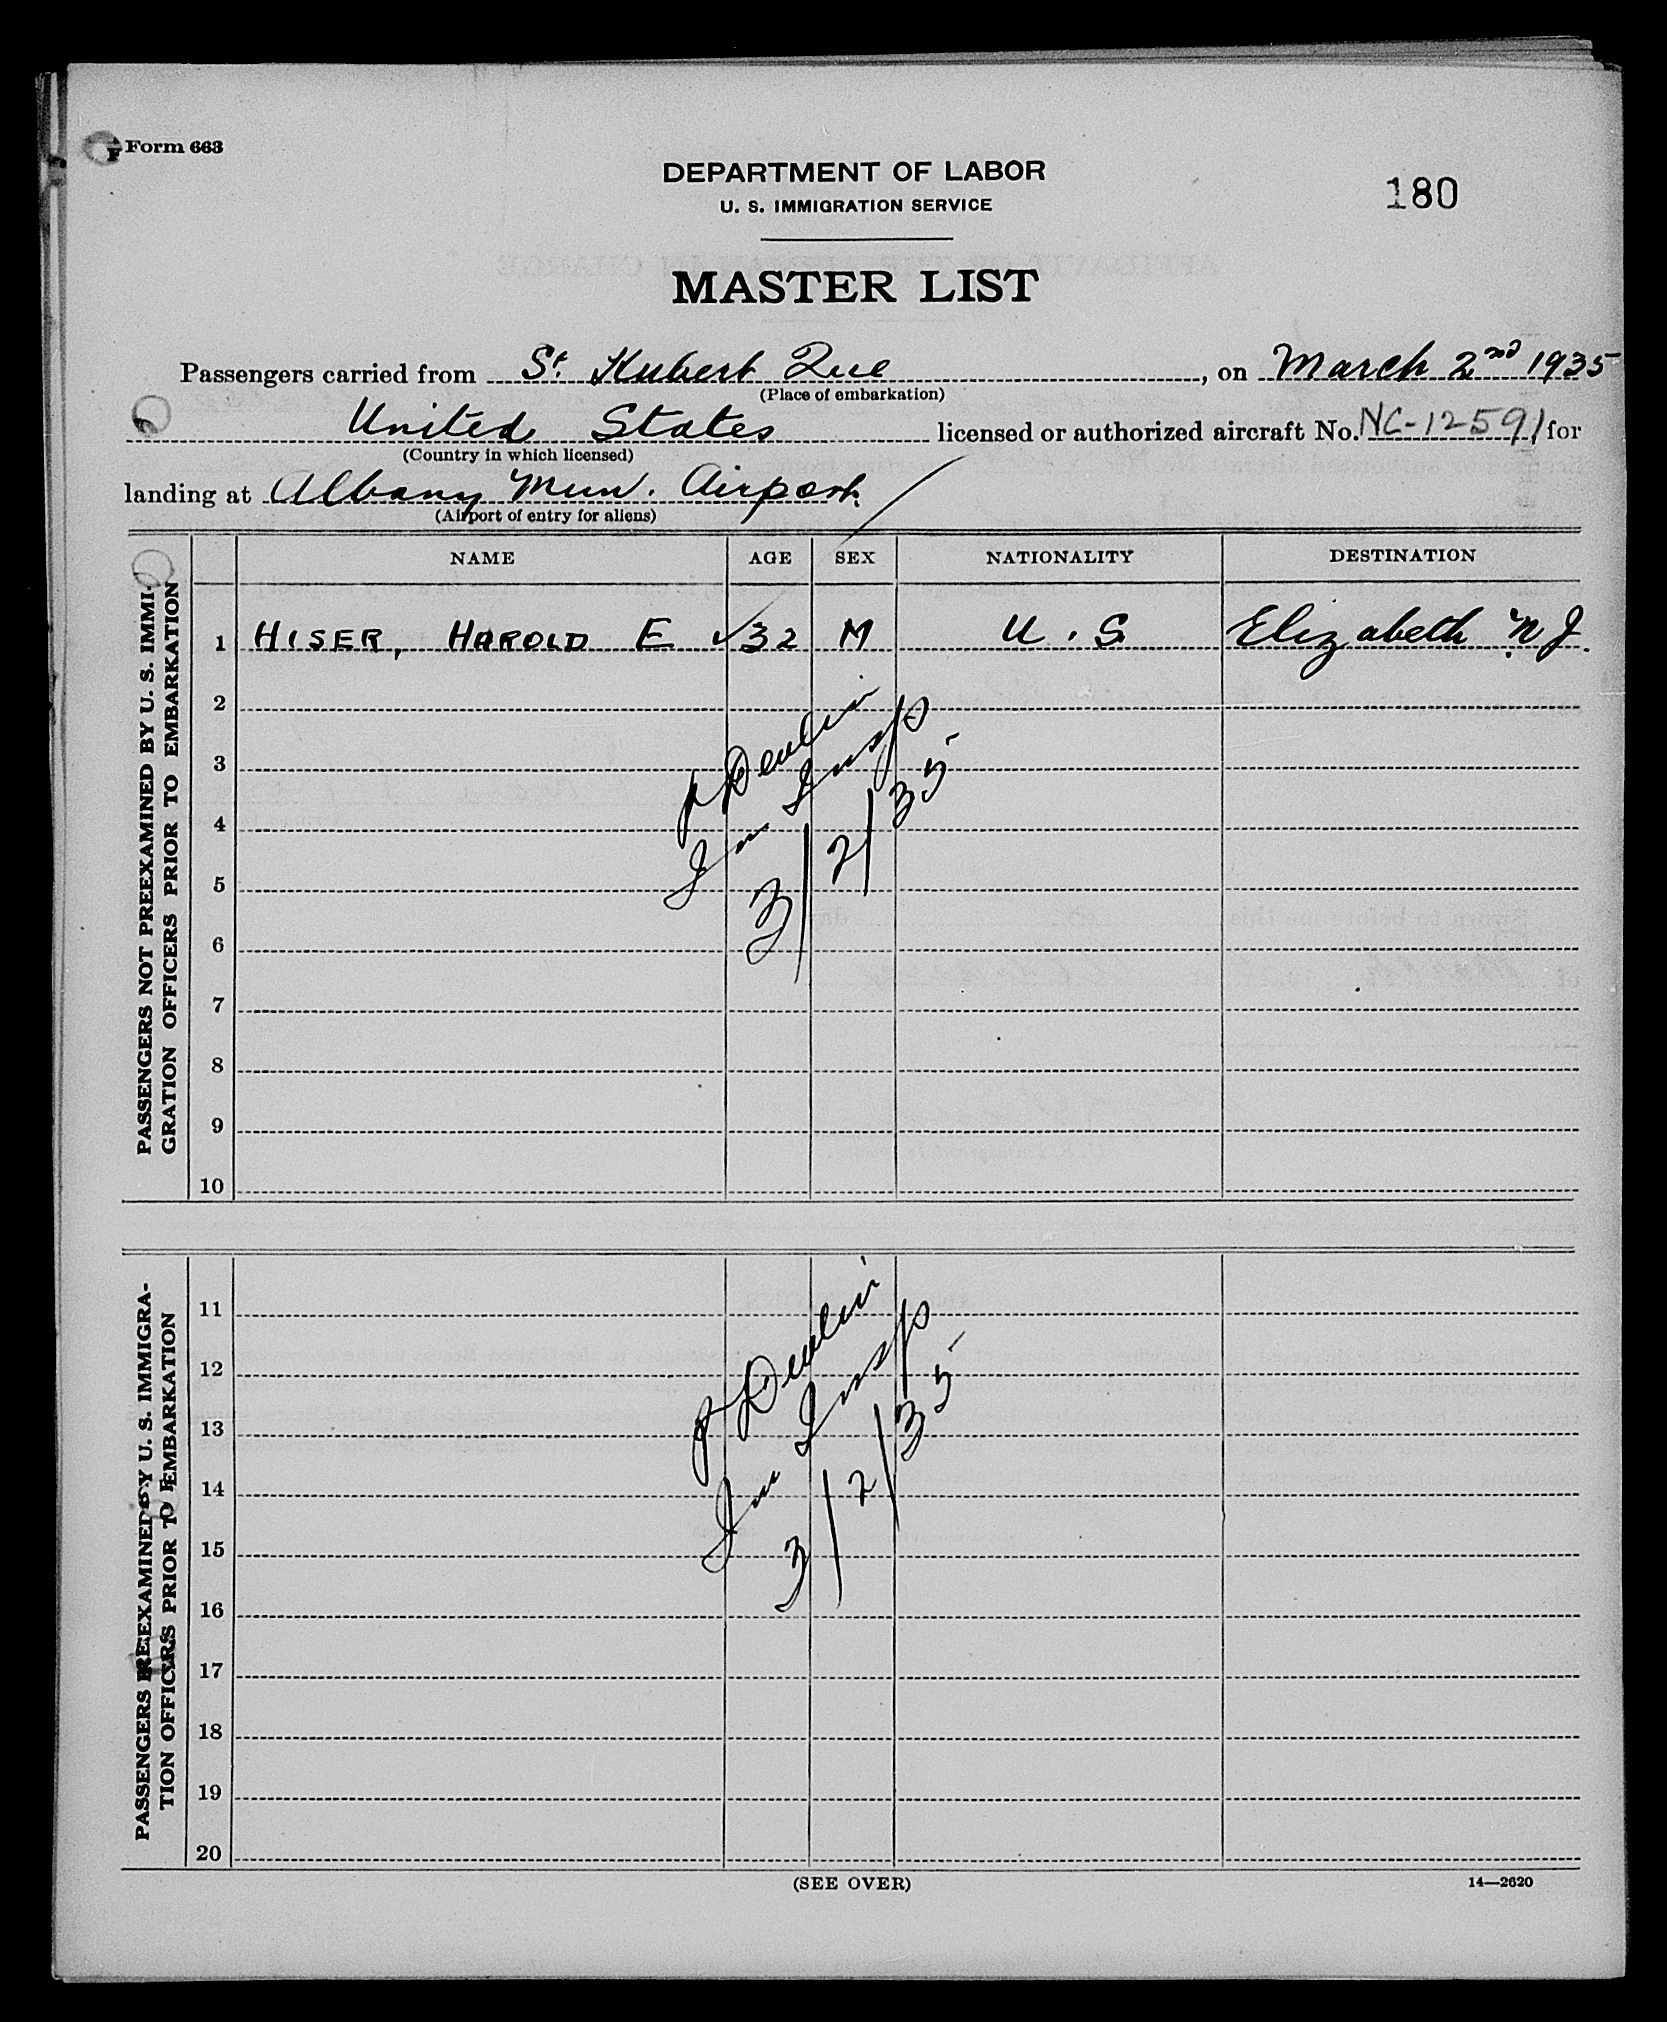 Form 663
DEPARTMENT OF LABOR
U. S. IMMIGRATION SERVICE
180
MASTER LIST
Passengers carried from St. Hubert Que, on March 2nd 1935
(Place of embarkation)
United States licensed or authorized aircraft No. NC-12591 for
(Country in which licensed)
landing at Albany Mun. Airport.
(Airport of entry for aliens)
NAME AGE SEX NATIONALITY DESTINATION
PASSENGERS NOT PREEXAMINED BY U. S. IMMI-
GRATION OFFICERS PRIOR TO EMBARKATION
1 HISER, HAROLD E ✓ 32 M U.S Elizabeth N.J.
2
3
4
5
6
7
8
9
10
P Devlin
Im Insp
3/2/35
PASSENGERS PREEXAMINED BY U. S. IMMIGRA-
TION OFFICERS PRIOR TO EMBARKATION
11
12
13
14
15
16
17
18
19
20
P Devlin
Im Insp
3/2/35
(SEE OVER)
14—2620